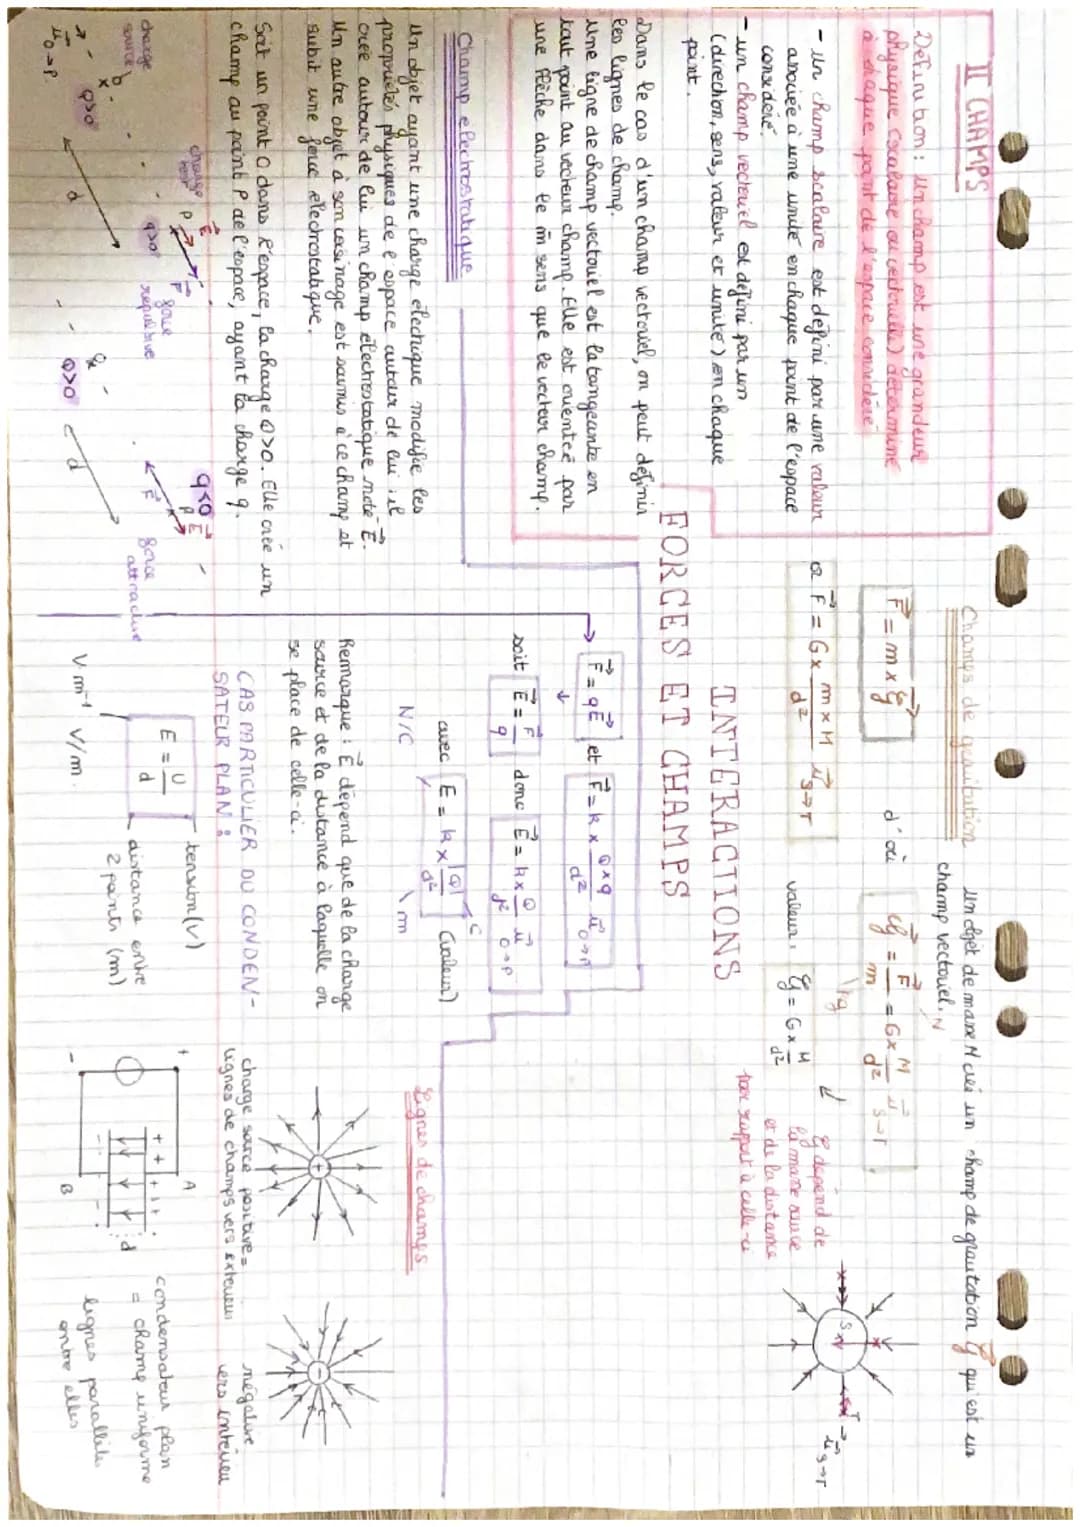 II CHAMPS
Définition : Un champ est une grandeur
physique (scalaire ou vectorielle) déterminé
à chaque point de l'espace considéré
- un champ scalaire est défini par une valeur
associée à une unité en chaque point de l'espace
considéré.
- un champ vectoriel est défini par un
(direction, sens, valeur et unité) en chaque
point.
Dans le cas d'un champ vectoriel, on peut définir
les lignes de champ.
Une ligne de champ vectoriel est la tangeante en
tout point au vecteur champ. Elle est orientée par
une flèche dans le m̄ sens que le vecteur champ.
Champ électrostatique
Un objet ayant une charge électrique modifie les
propriétés physiques de l'espace autour de lui : il
crée autour de lui un champ électrostatique noté E⃗.
Un autre objet à son voisinage est soumis à ce champ et
subit une force électrostatique.
Soit un point O dans l'espace, la charge Q>0. Elle crée un
champ au point P de l'espace, ayant la charge q.
charge
source
Q>0
u⃗ O→P
d
charge
test
P
E⃗
F⃗
q>0
force
repulsive
Q>0
d
q<0
E⃗
P
F⃗
force
attractive
FORCES ET CHAMPS
INTERACTIONS
Champs de gravitation
Un objet de masse M crée un champ de gravitation g⃗ qui est un
champ vectoriel.
F⃗ = m x g⃗
d'où
g⃗ = F⃗/m = G x M/d² u⃗ S→T
N
kg
or F⃗ = G x (m x M)/d² u⃗ S→T
valeur :
g = G x M/d²
g dépend de
la masse source
et de la distance
par rapport à celle-ci
S
T
u⃗ S→T
F⃗ = qE⃗ et F⃗ = k x (Q x q)/d² u⃗ O→P
soit E⃗ = F⃗/q donc E⃗ = k x Q/d² u⃗ O→P
avec E = k x |Q|/d² (valeur)
N/C
C
m
Remarque : E⃗ dépend que de la charge
source et de la distance à laquelle on
se place de celle-ci.
CAS PARTICULIER DU CONDEN-
SATEUR PLAN :
E = U/d
tension (V)
distance entre
2 points (m)
V.m⁻¹ V/m.
Lignes de champs
+
-
charge source positive =
lignes de champs vers extérieur
négative
vers intérieur
+
-
A
B
+ + + + +
- - - -
d
condensateur plan
= champ uniforme
lignes parallèles
entre elles